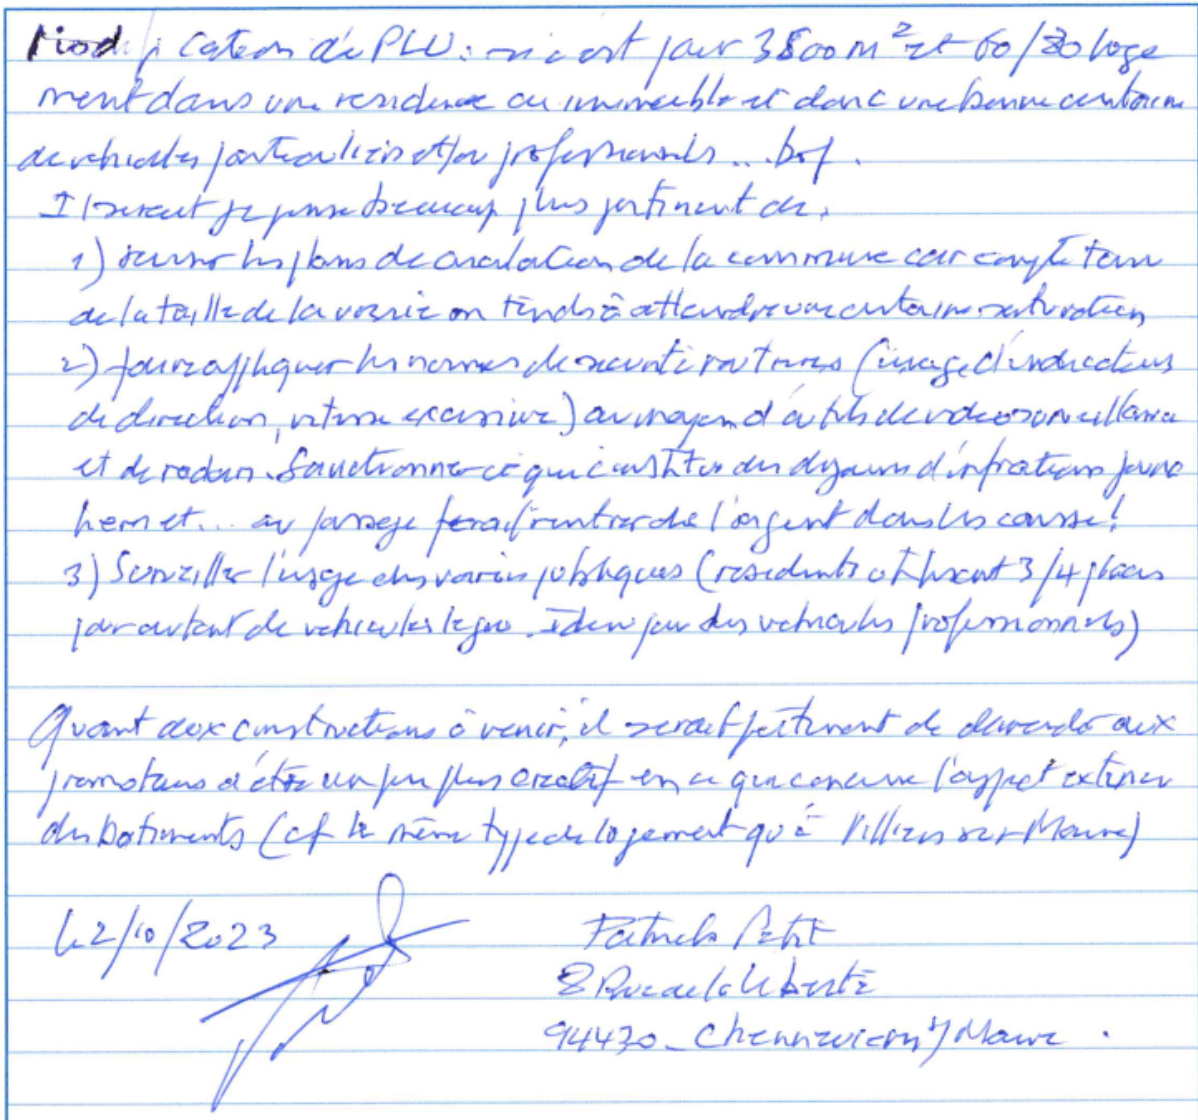 Modification du PLU : si c'est pour 3800 m² et 60/80 loge
ment dans une residence ou immeuble et donc une bonne centaine
de vehicules particuliers et/ou professionnels... bof.
Il serait je pense beaucoup plus pertinent de :
1) revoir les plans de circulation de la commune car compte tenu
de la taille de la voirie on tends à atteindre une certaine saturation
2) faire appliquer les normes de securité routieres (usage d'indicateurs
de direction, vitesse excessive) au moyen d'outils de videosurveillance
et de radars. Sanctionner ce qui constitue des dizaines d'infractions journa
lieres et... au passage ferait rentrer de l'argent dans les caisses!
3) Surveiller l'usage des voiries publiques (residents utilisant 3/4 places
par autant de vehicules legers. Idem pour des vehicules professionnels)
Quant aux constructions à venir, il serait pertinent de demander aux
promoteurs d'être un peu plus creatif en ce qui concerne l'aspect exterieur
des batiments (cf le même type de logement qu'à Villiers sur Marne)
Le 2/10/2023
Patrick Petit
8 Rue de la Liberté
94430 - Chennevieres s/ Marne.